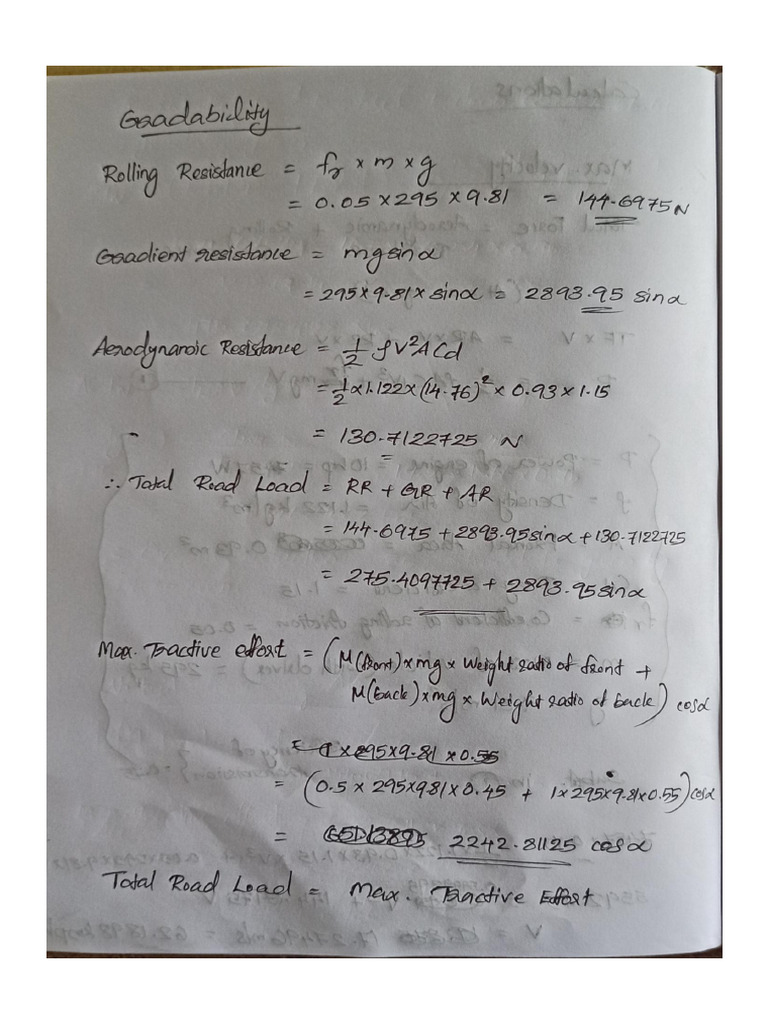 Gradability
Rolling Resistance = fr × m × g
= 0.05 × 295 × 9.81 = 144.6975 N
Gradient resistance = mg sinα
= 295 × 9.81 × sinα = 2893.95 sinα
Aerodynamic Resistance = 1/2 ρV²ACd
= 1/2 × 1.122 × (14.76)² × 0.93 × 1.15
= 130.7122725 N
∴ Total Road Load = RR + GR + AR
= 144.6975 + 2893.95 sinα + 130.7122725
= 275.4097725 + 2893.95 sinα
Max. Tractive effort = (M(front) × mg × Weight ratio of front +
M(back) × mg × Weight ratio of back) cosα
= 1 × 295 × 9.81 × 0.55
= (0.5 × 295 × 981 × 0.45 + 1 × 295 × 9.81 × 0.55) cosα
= 2242.81125 cosα
Total Road Load = Max. Tractive Effort